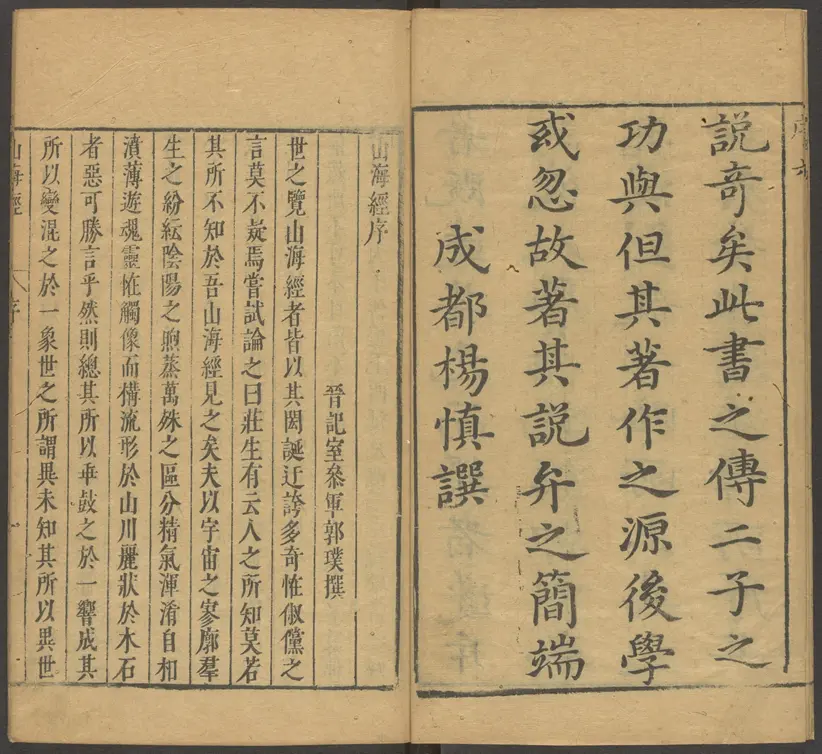 說竒矣此書之傳二子之
功與但其著作之源後學
或忽故著其說弁之簡端
成都楊慎譔
山海經序
晉記室叅軍郭璞撰
世之覽山海經者皆以其閎誕迂誇多奇恠俶儻之
言莫不疑焉嘗試論之曰莊生有云人之所知莫若
其所不知於吾山海經見之矣夫以宇宙之寥廓羣
生之紛紜陰陽之煦蒸萬殊之區分精氣渾淆自相
濆薄遊魂靈恠觸像而構流形於山川麗狀於木石
者惡可勝言乎然則總其所以乖鼓之於一響成其
所以變混之於一象世之所謂異未知其所以異世
山海經
序